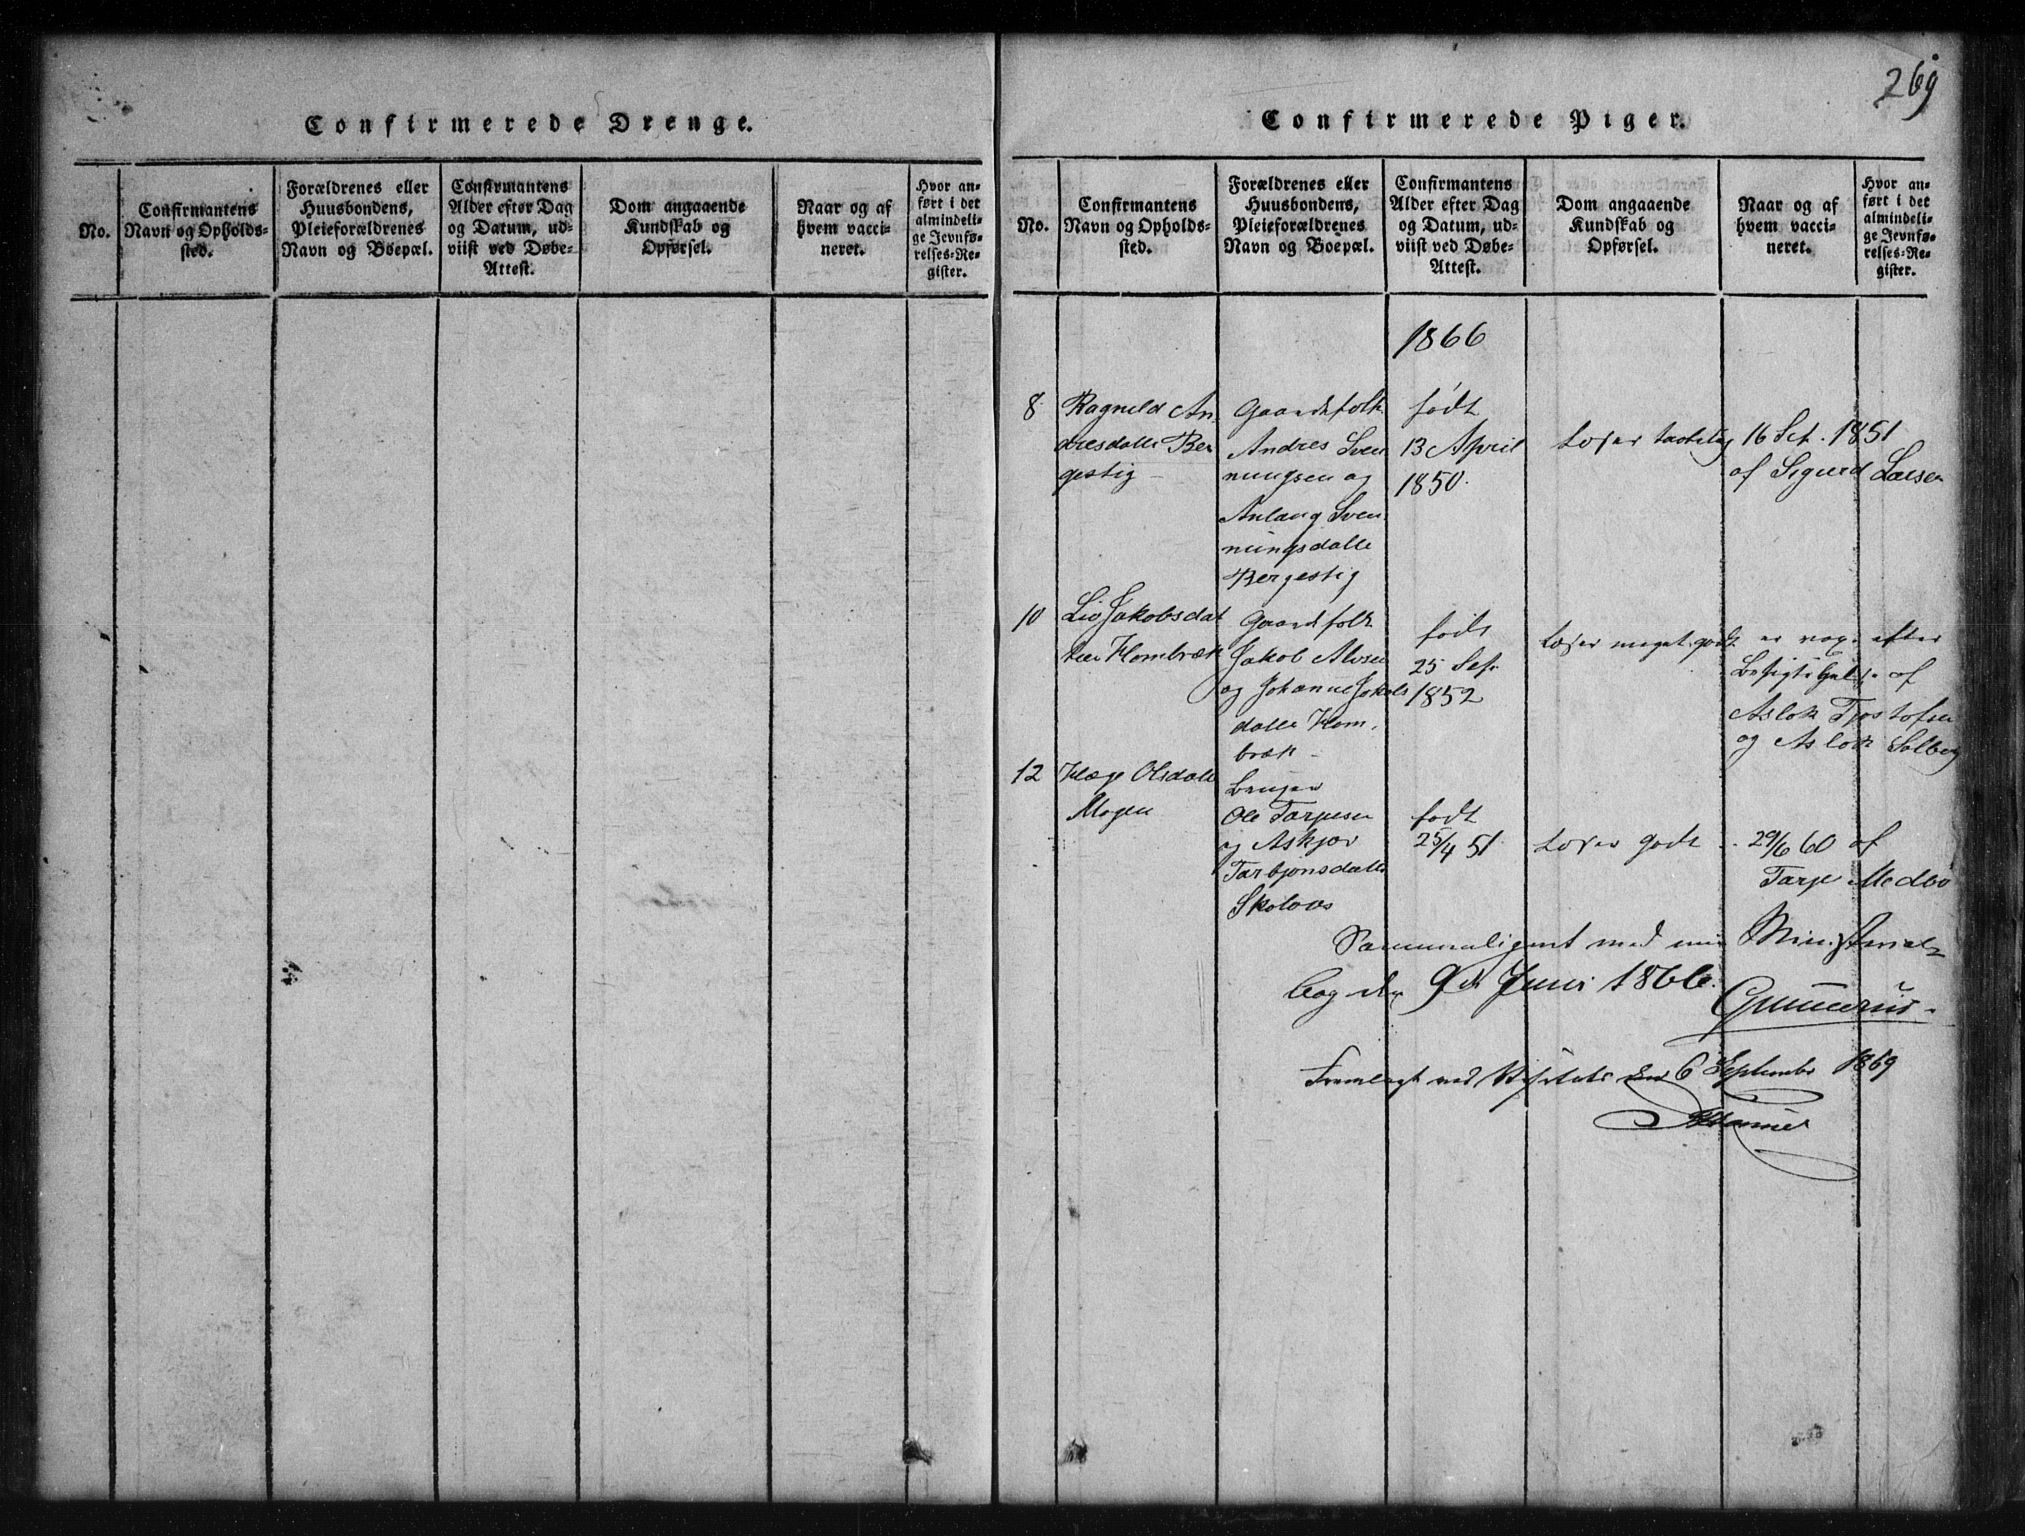 269
Confirmerede Drenge.
No.
Confirmantens
Navn og Opholds-
sted.
Forældrenes eller
Huusbondens,
Pleieforældrenes
Navn og Boepæl.
Confirmantens
Alder efter Dag
og Datum, ud-
viist ved Døbe-
Attest.
Dom angaaende
Kundskab og
Opførsel.
Naar og af
hvem vacci-
neret.
Hvor an-
ført i det
almindeli-
ge Jevnfø-
relses-Re-
gister.
Confirmerede Piger.
No.
Confirmantens
Navn og Opholds-
sted.
Forældrenes eller
Huusbondens,
Pleieforældrenes
Navn og Boepæl.
Confirmantens
Alder efter Dag
og Datum, ud-
viist ved Døbe-
Attest.
Dom angaaende
Kundskab og
Opførsel.
Naar og af
hvem vacci-
neret.
Hvor an-
ført i det
almindeli-
ge Jevnfø-
relses-Re-
gister.
1866
8
Ragnild An
dresdatte Ber
gestig
Gaardfolk
Andres Sven
nungsen og
Anlaug Sven
nungsdatte
Bergestig
født
13 April
1850.
Læser
16 Sept. 1851
af Sigurd Larsen
10
Liv Jakobsdat
ter Hombræk
Gaardfolk
Jakob Alvsen
og Johanne Jakobs
datte Hom
bræk
født
25 Sep.
1852
Læser meget godt
er vax. efter
af
Aslak Tjostofsen
og Aslak Solberg
12
Hæge Olsdatte
Mogen
Ole Tarjesen
og Askjær
Tarbjønsdatte
Skolaas
født
25/4 51
Læser godt
29/6 60 af
Tarje Medbø
Sammenlignet med min Ministerial-
bog den 9de Juni 1866.
Gunnerus
Fremlagt ved Visitats den 6 September 1869